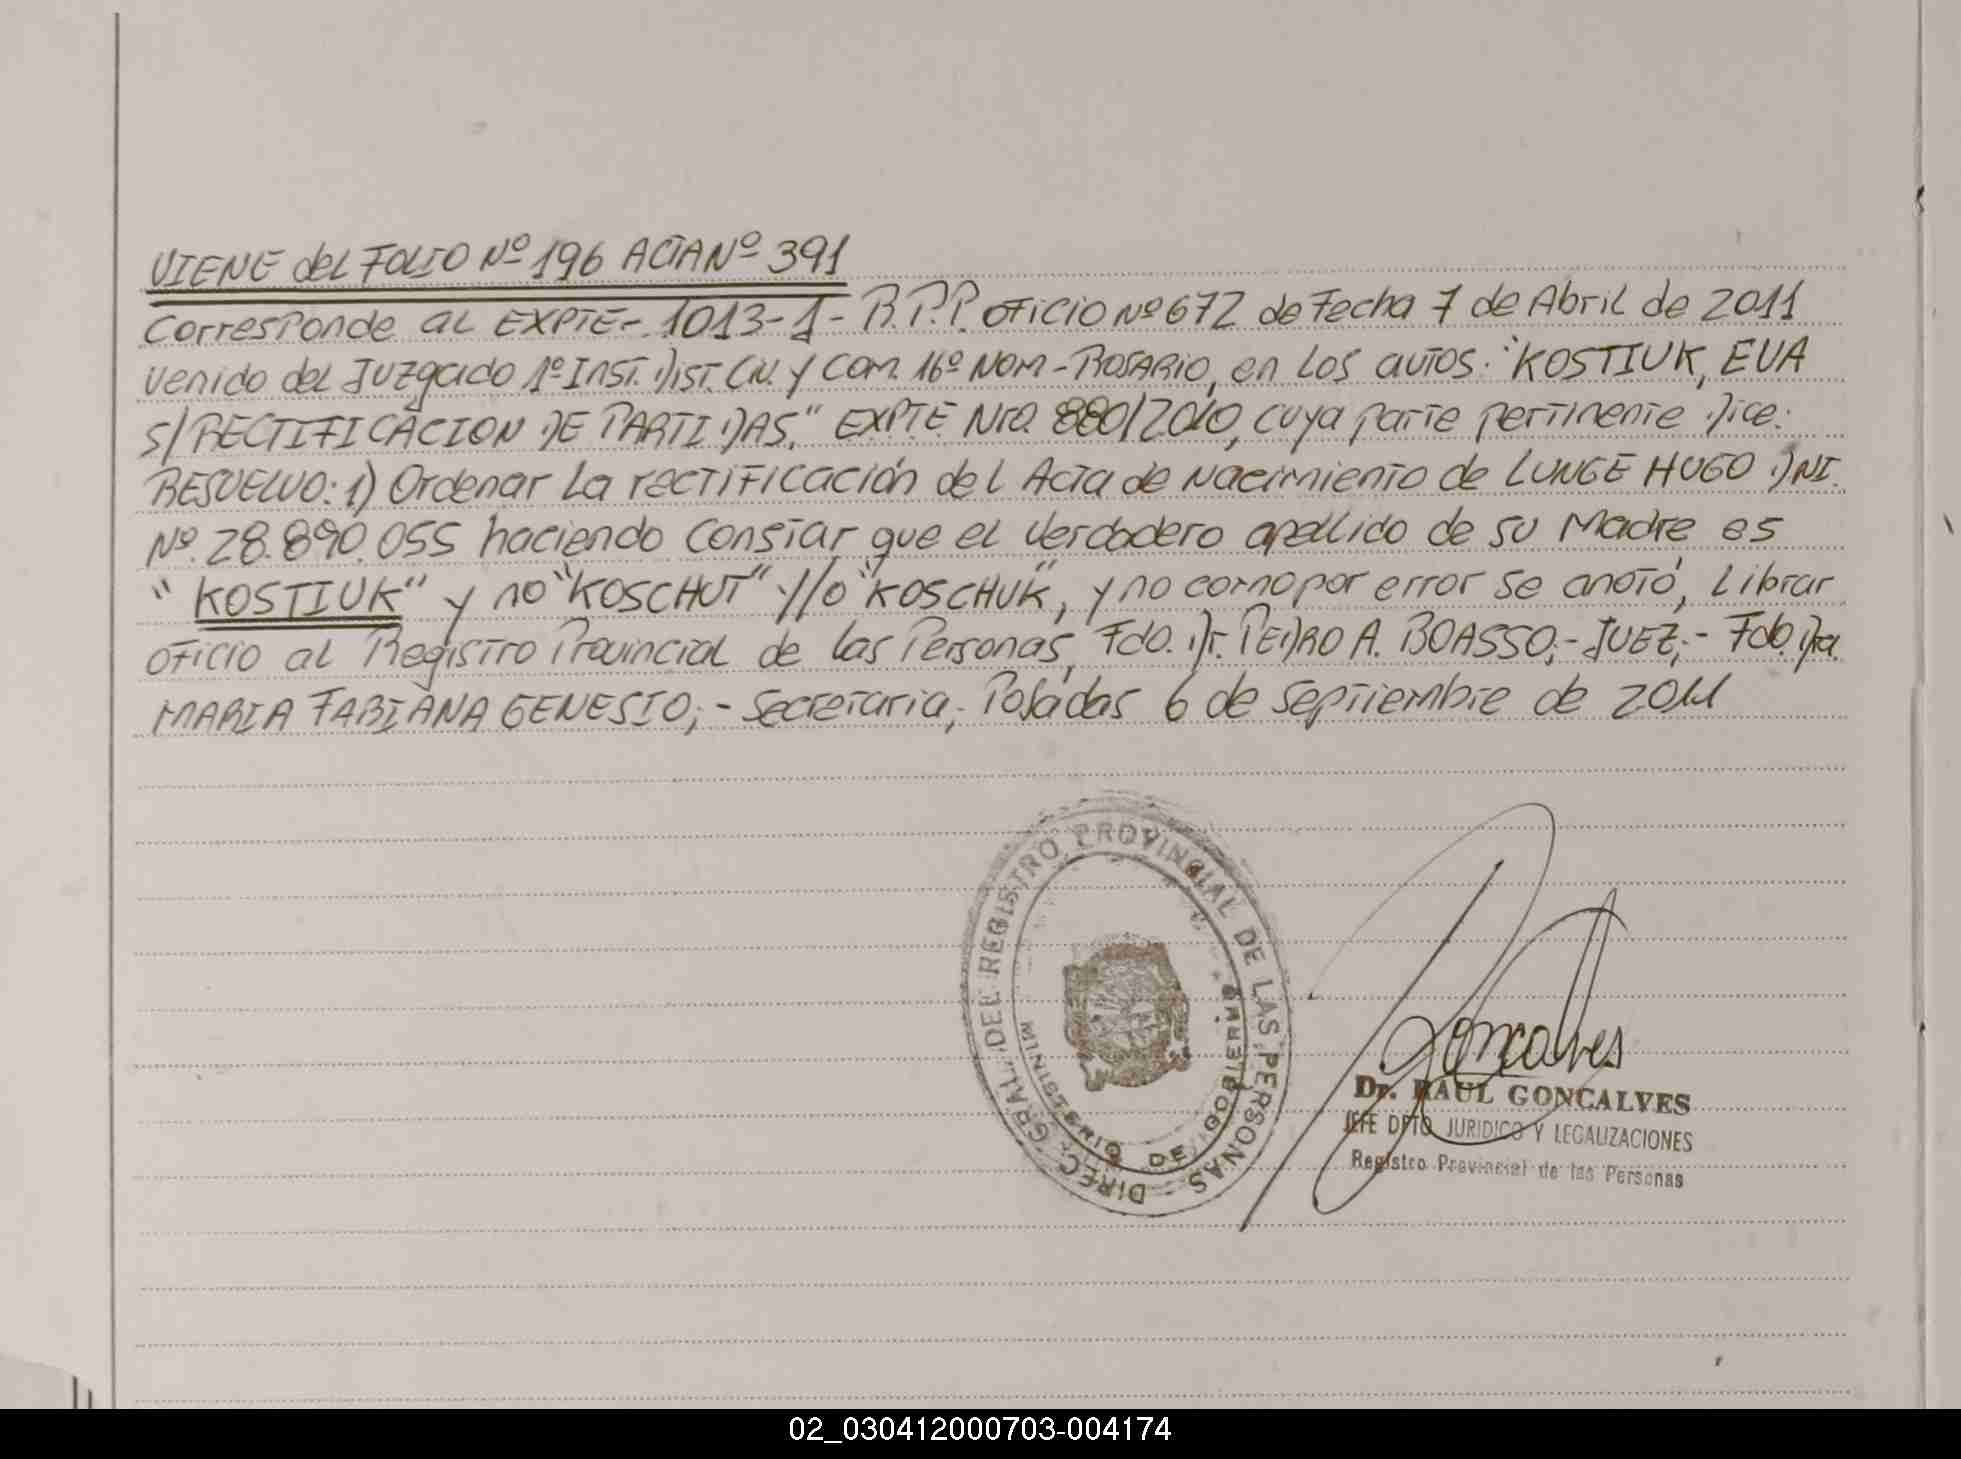 VIENE del FOLIO Nº 196 ACTA Nº 391
Corresponde al EXPTE- 1013-1- R.P.P. oficio Nº 672 de Fecha 7 de Abril de 2011
venido del Juzgado 1º INST. DIST. CIV. y COM. 16º NOM-ROSARIO, en los autos: "KOSTIUK, EVA
S/ RECTIFICACION DE PARTIDAS." EXPTE Nro. 880/2010, cuya parte pertinente Dice:
RESUELVO: 1) Ordenar La rectificación del Acta de Nacimiento de LUNGE HUGO DNI.
Nº. 28.890.055 haciendo constar que el verdadero apellido de su Madre es
"KOSTIUK" y no "KOSCHUT" y/o "KOSCHUK", y no como por error se anotó, Librar
oficio al Registro Provincial de las Personas, Fdo. Dr. PEDRO A. BOASSO;- JUEZ;- Fdo. Dra.
MARIA FABIANA GENESIO;- Secretaria, Posadas 6 de septiembre de 2011
DIREC. GRAL. DEL REGISTRO PROVINCIAL DE LAS PERSONAS
MINISTERIO DE GOBIERNO
Goncalves
Dr. RAUL GONCALVES
JEFE DPTO JURIDICO Y LEGALIZACIONES
Registro Provincial de las Personas
02_030412000703-004174